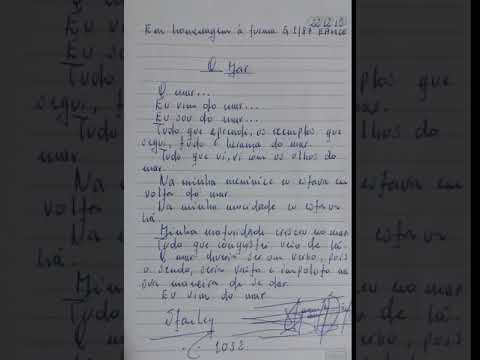 22.12.15
Em homenagem á turma G 1/84
O Mar
O mar...
Eu vim do mar...
Eu sou do mar...
Tudo que aprendi, os exemplos que
segui, tudo é herança do mar.
Tudo que vi, vi com os olhos do
mar.
Na minha meninice eu estava em
volta do mar.
Na minha mocidade eu estava
lá.
Minha maturidade cresceu no mar
Tudo que conquistei veio de lá.
O mar devia ser um verbo, pois
o sendo, seria vasto e impoluto na
sua maneira de se dar.
Eu vim do mar
Starley
1032